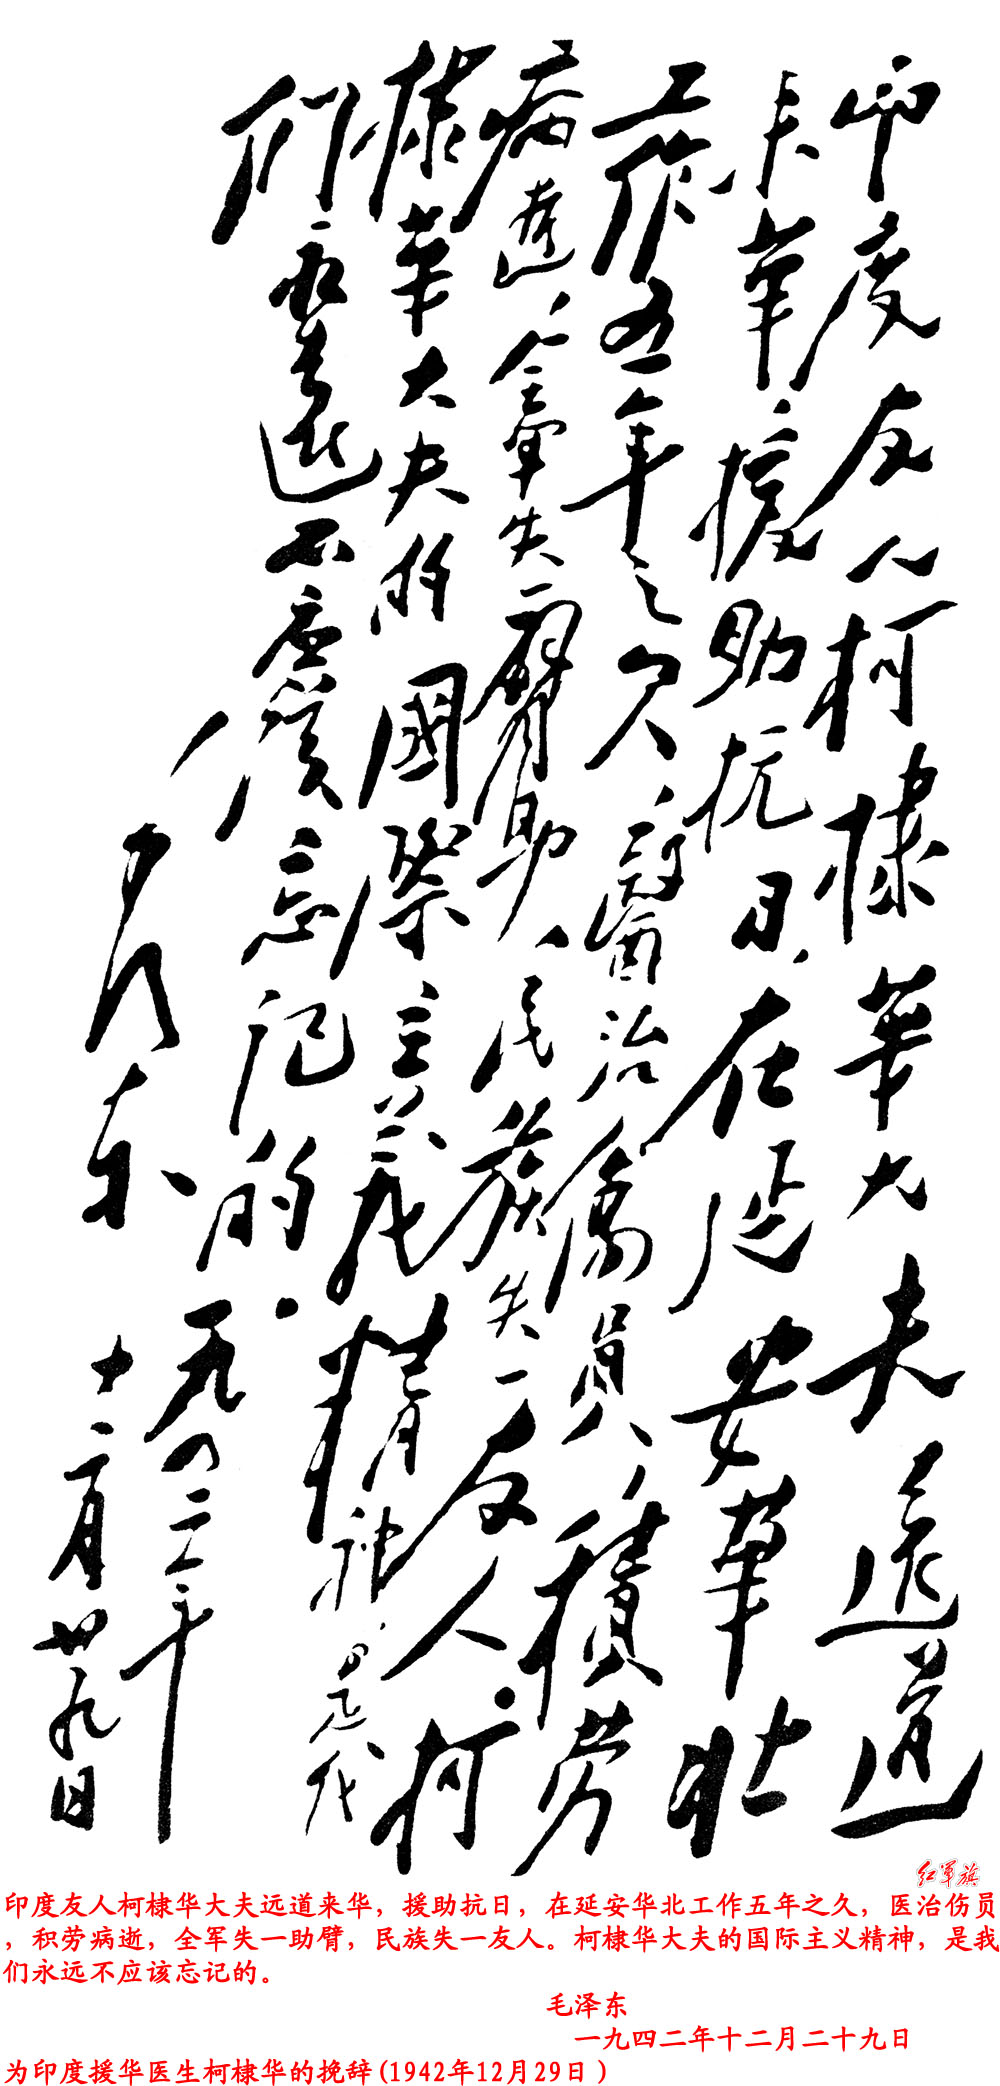 印度友人柯棣華大夫遠道
来華，援助抗日，在延安華北
工作五年之久，醫治傷員，積劳
病逝，全軍失一臂助，民族失一友人。柯
棣華大夫的國際主義精神，是我
们永遠不應該忘记的。
毛泽东
一九四二年
十二月廿九日
红军旗
印度友人柯棣华大夫远道来华，援助抗日，在延安华北工作五年之久，医治伤员
，积劳病逝，全军失一助臂，民族失一友人。柯棣华大夫的国际主义精神，是我
们永远不应该忘记的。
毛泽东
一九四二年十二月二十九日
为印度援华医生柯棣华的挽辞(1942年12月29日)